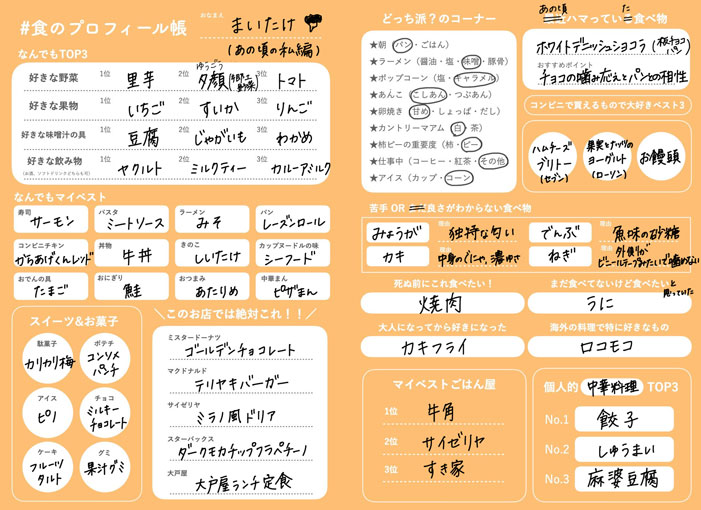 #食のプロフィール帳
おなまえ
まいたけ
(あの頃の私編)
なんでもTOP3
好きな野菜 1位 里芋 2位 夕顔(郷土野菜) ゆうごう 3位 トマト
好きな果物 1位 いちご 2位 すいか 3位 りんご
好きな味噌汁の具 1位 豆腐 2位 じゃがいも 3位 わかめ
好きな飲み物 1位 ヤクルト 2位 ミルクティー 3位 カルーアミルク
(お酒、ソフトドリンクどちらも可)
なんでもマイベスト
寿司 サーモン
パスタ ミートソース
ラーメン みそ
パン レーズンロール
コンビニチキン からあげくんレッド
丼物 牛丼
きのこ しいたけ
カップヌードルの味 シーフード
おでんの具 たまご
おにぎり 鮭
おつまみ あたりめ
中華まん ピザまん
スイーツ&お菓子
駄菓子 カリカリ梅
ポテチ コンソメパンチ
アイス ピノ
チョコ ミルキーチョコレート
ケーキ フルーツタルト
グミ 果汁グミ
＼このお店では絶対これ！！／
ミスタードーナツ
ゴールデンチョコレート
マクドナルド
テリヤキバーガー
サイゼリヤ
ミラノ風ドリア
スターバックス
ダークモカチップフラペチーノ
大戸屋
大戸屋ランチ定食
どっち派？のコーナー
★朝（パン・ごはん）
★ラーメン（醤油・塩・味噌・豚骨）
★ポップコーン（塩・キャラメル）
★あんこ（こしあん・つぶあん）
★卵焼き（甘め・しょっぱ・だし）
★カントリーマアム（白・茶）
★柿ピーの重要度（柿・ピー）
★仕事中（コーヒー・紅茶・その他）
★アイス（カップ・コーン）
あの頃 ハマっていた食べ物
ホワイトデニッシュショコラ(板チョコパン)
おすすめポイント
チョコの噛み応えとパンとの相性
コンビニで買えるもので大好きベスト3
ハムチーズブリトー(セブン)
果実とナッツのヨーグルト(ローソン)
お饅頭
苦手 OR 良さがわからない食べ物
みょうが 理由 独特な匂い
でんぶ 理由 魚味の砂糖
カキ 理由 中身のぐにゃ、濃ゆさ
ねぎ 理由 外側がビニールテープみたいで噛めない
死ぬ前にこれ食べたい！
焼肉
まだ食べてないけど食べたいと思っていた
うに
大人になってから好きになった
カキフライ
海外の料理で特に好きなもの
ロコモコ
マイベストごはん屋
1位 牛角
2位 サイゼリヤ
3位 すき家
個人的 中華料理 TOP3
No.1 餃子
No.2 しゅうまい
No.3 麻婆豆腐